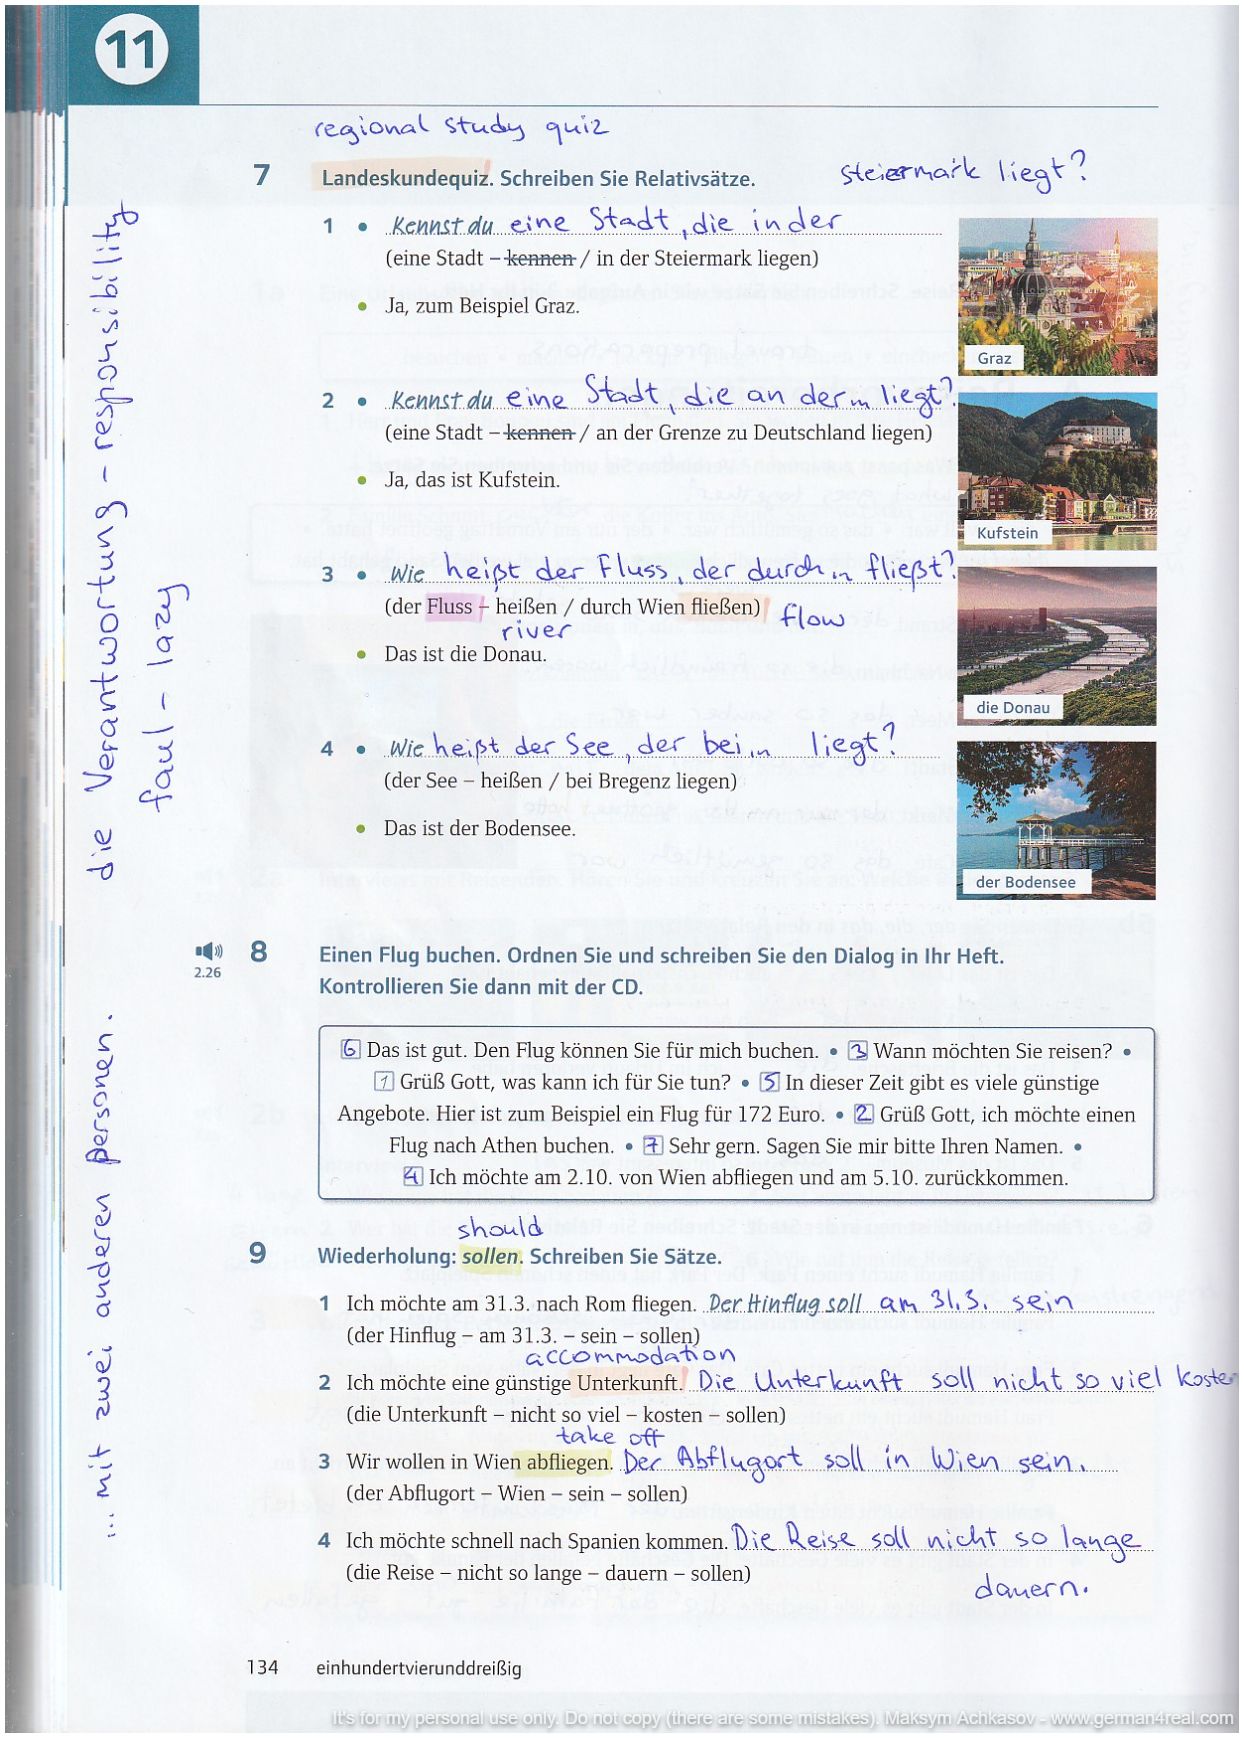 11
regional study quiz
7 Landeskundequiz. Schreiben Sie Relativsätze.
steiermark liegt?
1 • Kennst du eine Stadt, die in der
(eine Stadt – kennen / in der Steiermark liegen)
• Ja, zum Beispiel Graz.
Graz
2 • Kennst du eine Stadt, die an der „ liegt?
(eine Stadt – kennen / an der Grenze zu Deutschland liegen)
• Ja, das ist Kufstein.
Kufstein
3 • Wie heißt der Fluss, der durch „ fließt?
(der Fluss – heißen / durch Wien fließen) flow
river
• Das ist die Donau.
die Donau
4 • Wie heißt der See, der bei „ liegt?
(der See – heißen / bei Bregenz liegen)
• Das ist der Bodensee.
der Bodensee
die Verantwortung – responsibility
faul – lazy
2.26
8 Einen Flug buchen. Ordnen Sie und schreiben Sie den Dialog in Ihr Heft.
Kontrollieren Sie dann mit der CD.
6 Das ist gut. Den Flug können Sie für mich buchen. • 3 Wann möchten Sie reisen? •
1 Grüß Gott, was kann ich für Sie tun? • 5 In dieser Zeit gibt es viele günstige
Angebote. Hier ist zum Beispiel ein Flug für 172 Euro. • 2 Grüß Gott, ich möchte einen
Flug nach Athen buchen. • 7 Sehr gern. Sagen Sie mir bitte Ihren Namen. •
4 Ich möchte am 2.10. von Wien abfliegen und am 5.10. zurückkommen.
... mit zwei anderen Personen.
should
9 Wiederholung: sollen. Schreiben Sie Sätze.
1 Ich möchte am 31.3. nach Rom fliegen. Der Hinflug soll am 31.3. sein
(der Hinflug – am 31.3. – sein – sollen)
accommodation
2 Ich möchte eine günstige Unterkunft. Die Unterkunft soll nicht so viel koste
(die Unterkunft – nicht so viel – kosten – sollen)
take off
3 Wir wollen in Wien abfliegen. Der Abflugort soll in Wien sein.
(der Abflugort – Wien – sein – sollen)
4 Ich möchte schnell nach Spanien kommen. Die Reise soll nicht so lange
(die Reise – nicht so lange – dauern – sollen)
dauern.
134 einhundertvierunddreißig
It's for my personal use only. Do not copy (there are some mistakes). Maksym Achkasov - www.german4real.com